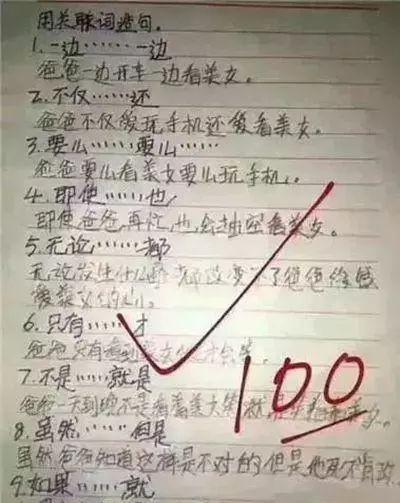 用关联词造句.
1.一边……一边
爸爸一边开车一边看美女。
2.不仅……还
爸爸不仅爱玩手机还爱看美女。
3.要么……要么……
爸爸要么看美女要么玩手机。
4.即使……也
即使爸爸,再忙,也,会抽空看美女。
5.无论……都
无论发生什么 都改变不了爸爸
爱美女的心。
6.只有……才
爸爸只有看到美女 才会笑。
7.不是……就是
爸爸一天到晚不是看着美女笑就是 美女。
8.虽然……但是
虽然爸爸知道这样是不对的但是他死不肯改
9.如果……就
100